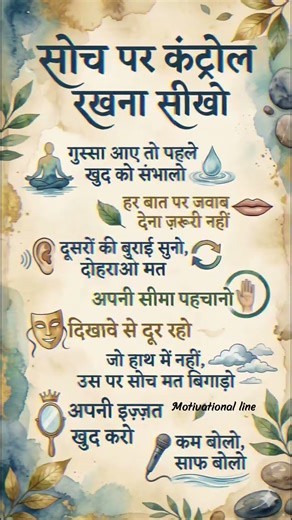 सोच पर कंट्रोल
रखना सीखो
गुस्सा आए तो पहले
खुद को संभालो
हर बात पर जवाब
देना ज़रूरी नहीं
दूसरों की बुराई सुनो,
दोहराओ मत
अपनी सीमा पहचानो
दिखावे से दूर रहो
जो हाथ में नहीं,
उस पर सोच मत बिगाड़ो
अपनी इज़्ज़त
खुद करो
Motivational line
कम बोलो,
साफ बोलो